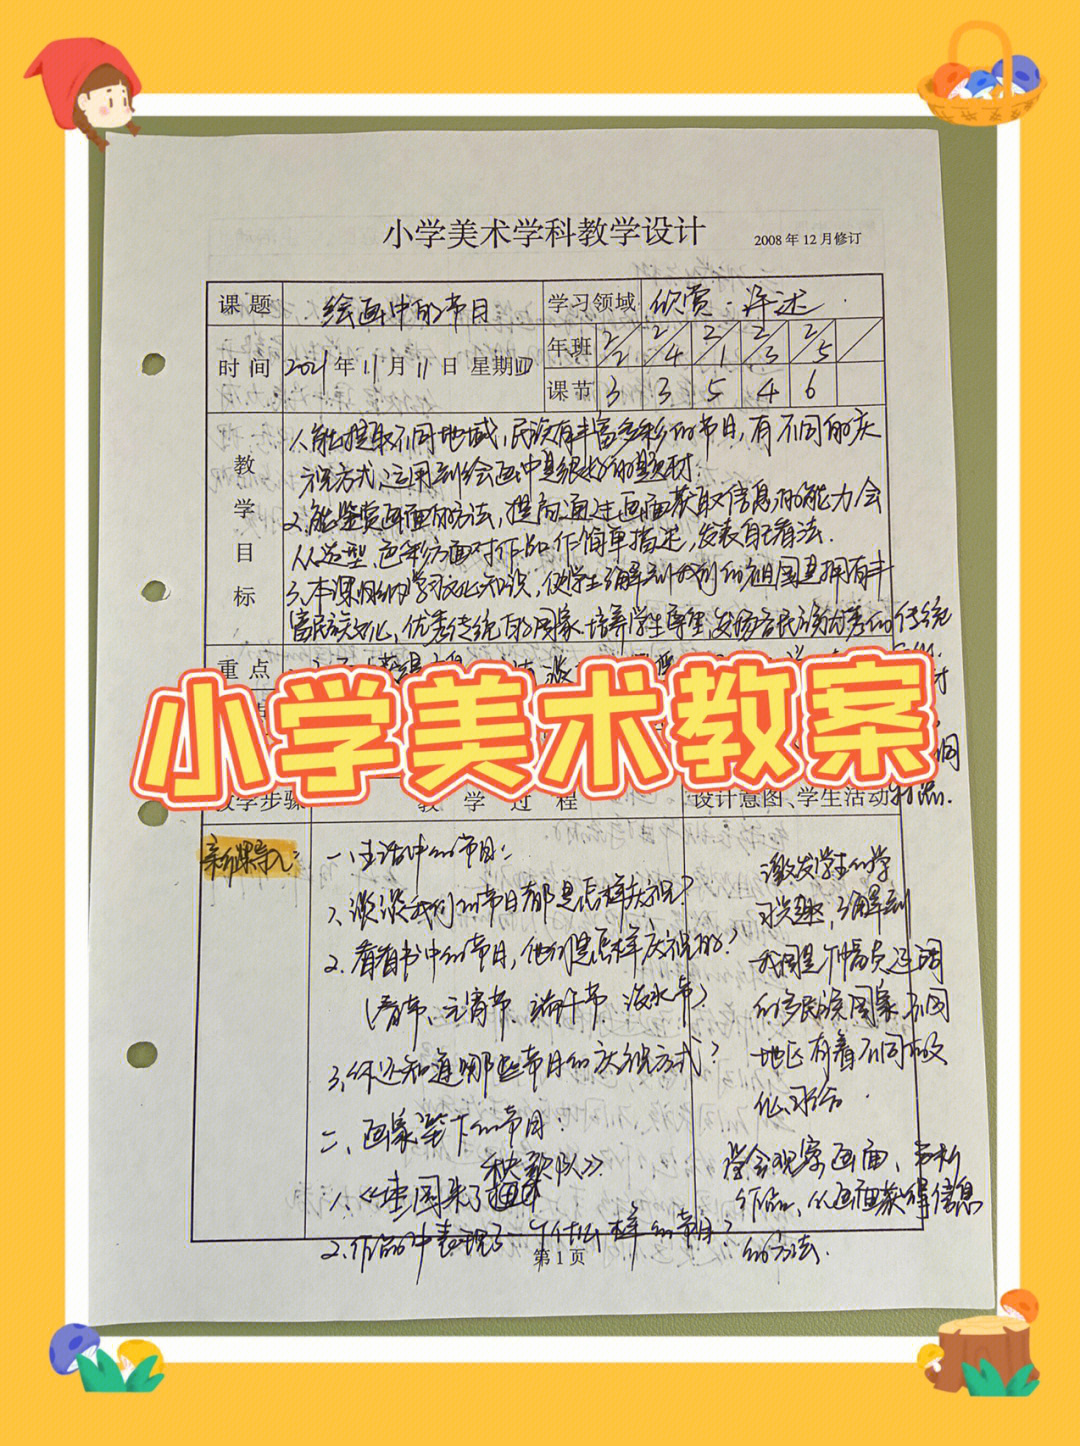 小学美术学科教学设计 2008年12月修订
课题 绘画中的节日 学习领域 欣赏·评述
时间 2021年11月11日 星期四 年班 2/2 2/4 2/1 2/3 2/5
课节 3 3 5 4 6
教学目标
1、能提取不同地域，民族有丰富多彩的节日，有不同的庆
祝方式，运用到绘画中是很好的题材.
2、能鉴赏画面的方法，提高通过画面获取信息的能力会
从造型、色彩方面对作品作简单描述，发表自己看法.
3、本课归纳学习文化知识，使学生了解到我们的祖国是拥有丰
富民族文化，优秀传统的国家.培养学生尊重，发扬各民族优秀的传统
重点
小学美术教案
教学步骤 教学过程 设计意图、学生活动
新课导入：
一、生活中的节日：
1、谈谈我们的节日都是怎样庆祝？
2.看看书中的节日，他们是怎样庆祝的？
（春节、元宵节、端午节、泼水节）
3、你还知道哪些节日的庆祝方式？
二、画家笔下的节日.
秧歌队》
1、《
2.作品中表现了一个什么样的节日？
激发学生的学
习兴趣，了解到
我国是个幅员辽阔
的多民族国家.不同
地区有着不同的文
化习俗.
学会观察画面、赏析
作品、从画面获得信息
的方法.
第1页